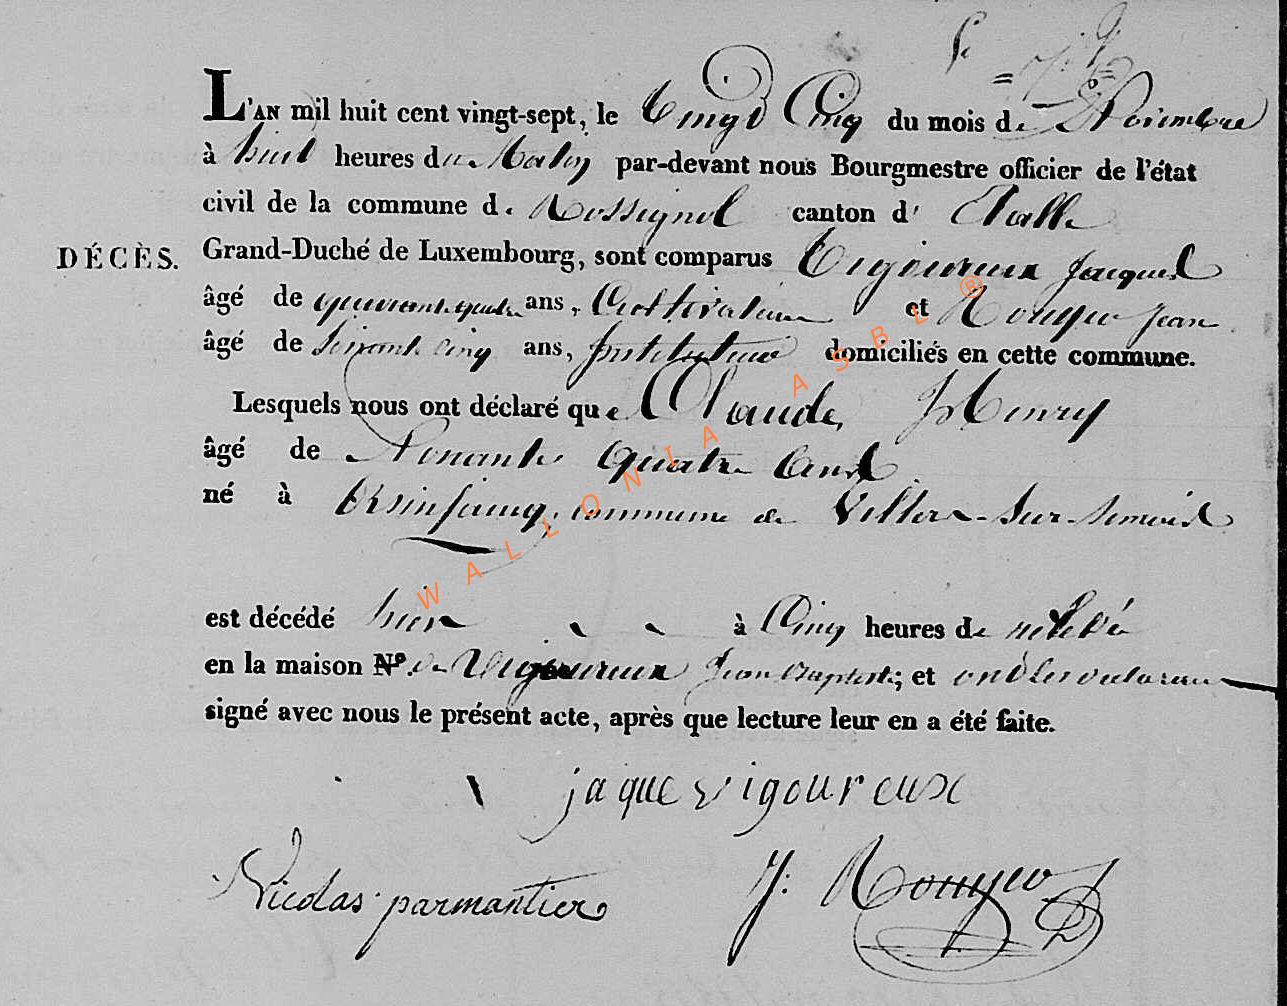 L'AN mil huit cent vingt-sept, le Vingt Cinq du mois de Novembre
à huit heures du Matin par-devant nous Bourgmestre officier de l'état
civil de la commune de Rossignol canton d' Etalle
DÉCÈS. Grand-Duché de Luxembourg, sont comparus Vigoureux Jacques
âgé de quarante quatre ans, Cultivateur et Rouyer Jean
âgé de Soixante cinq ans, Instituteur domiciliés en cette commune.
Lesquels nous ont déclaré que Claude, Henry
âgé de Nonante Quatre ans
né à Orsinfaing, commune de Villers-Sur-Semois
est décédé hier à Cinq heures de relevée
en la maison N.º de Vigoureux Jean Baptiste; et ont les déclarans
signé avec nous le présent acte, après que lecture leur en a été faite.
jaque vigoureux
Nicolas parmantier J: Rouyer
WALLONIA ASBL ®